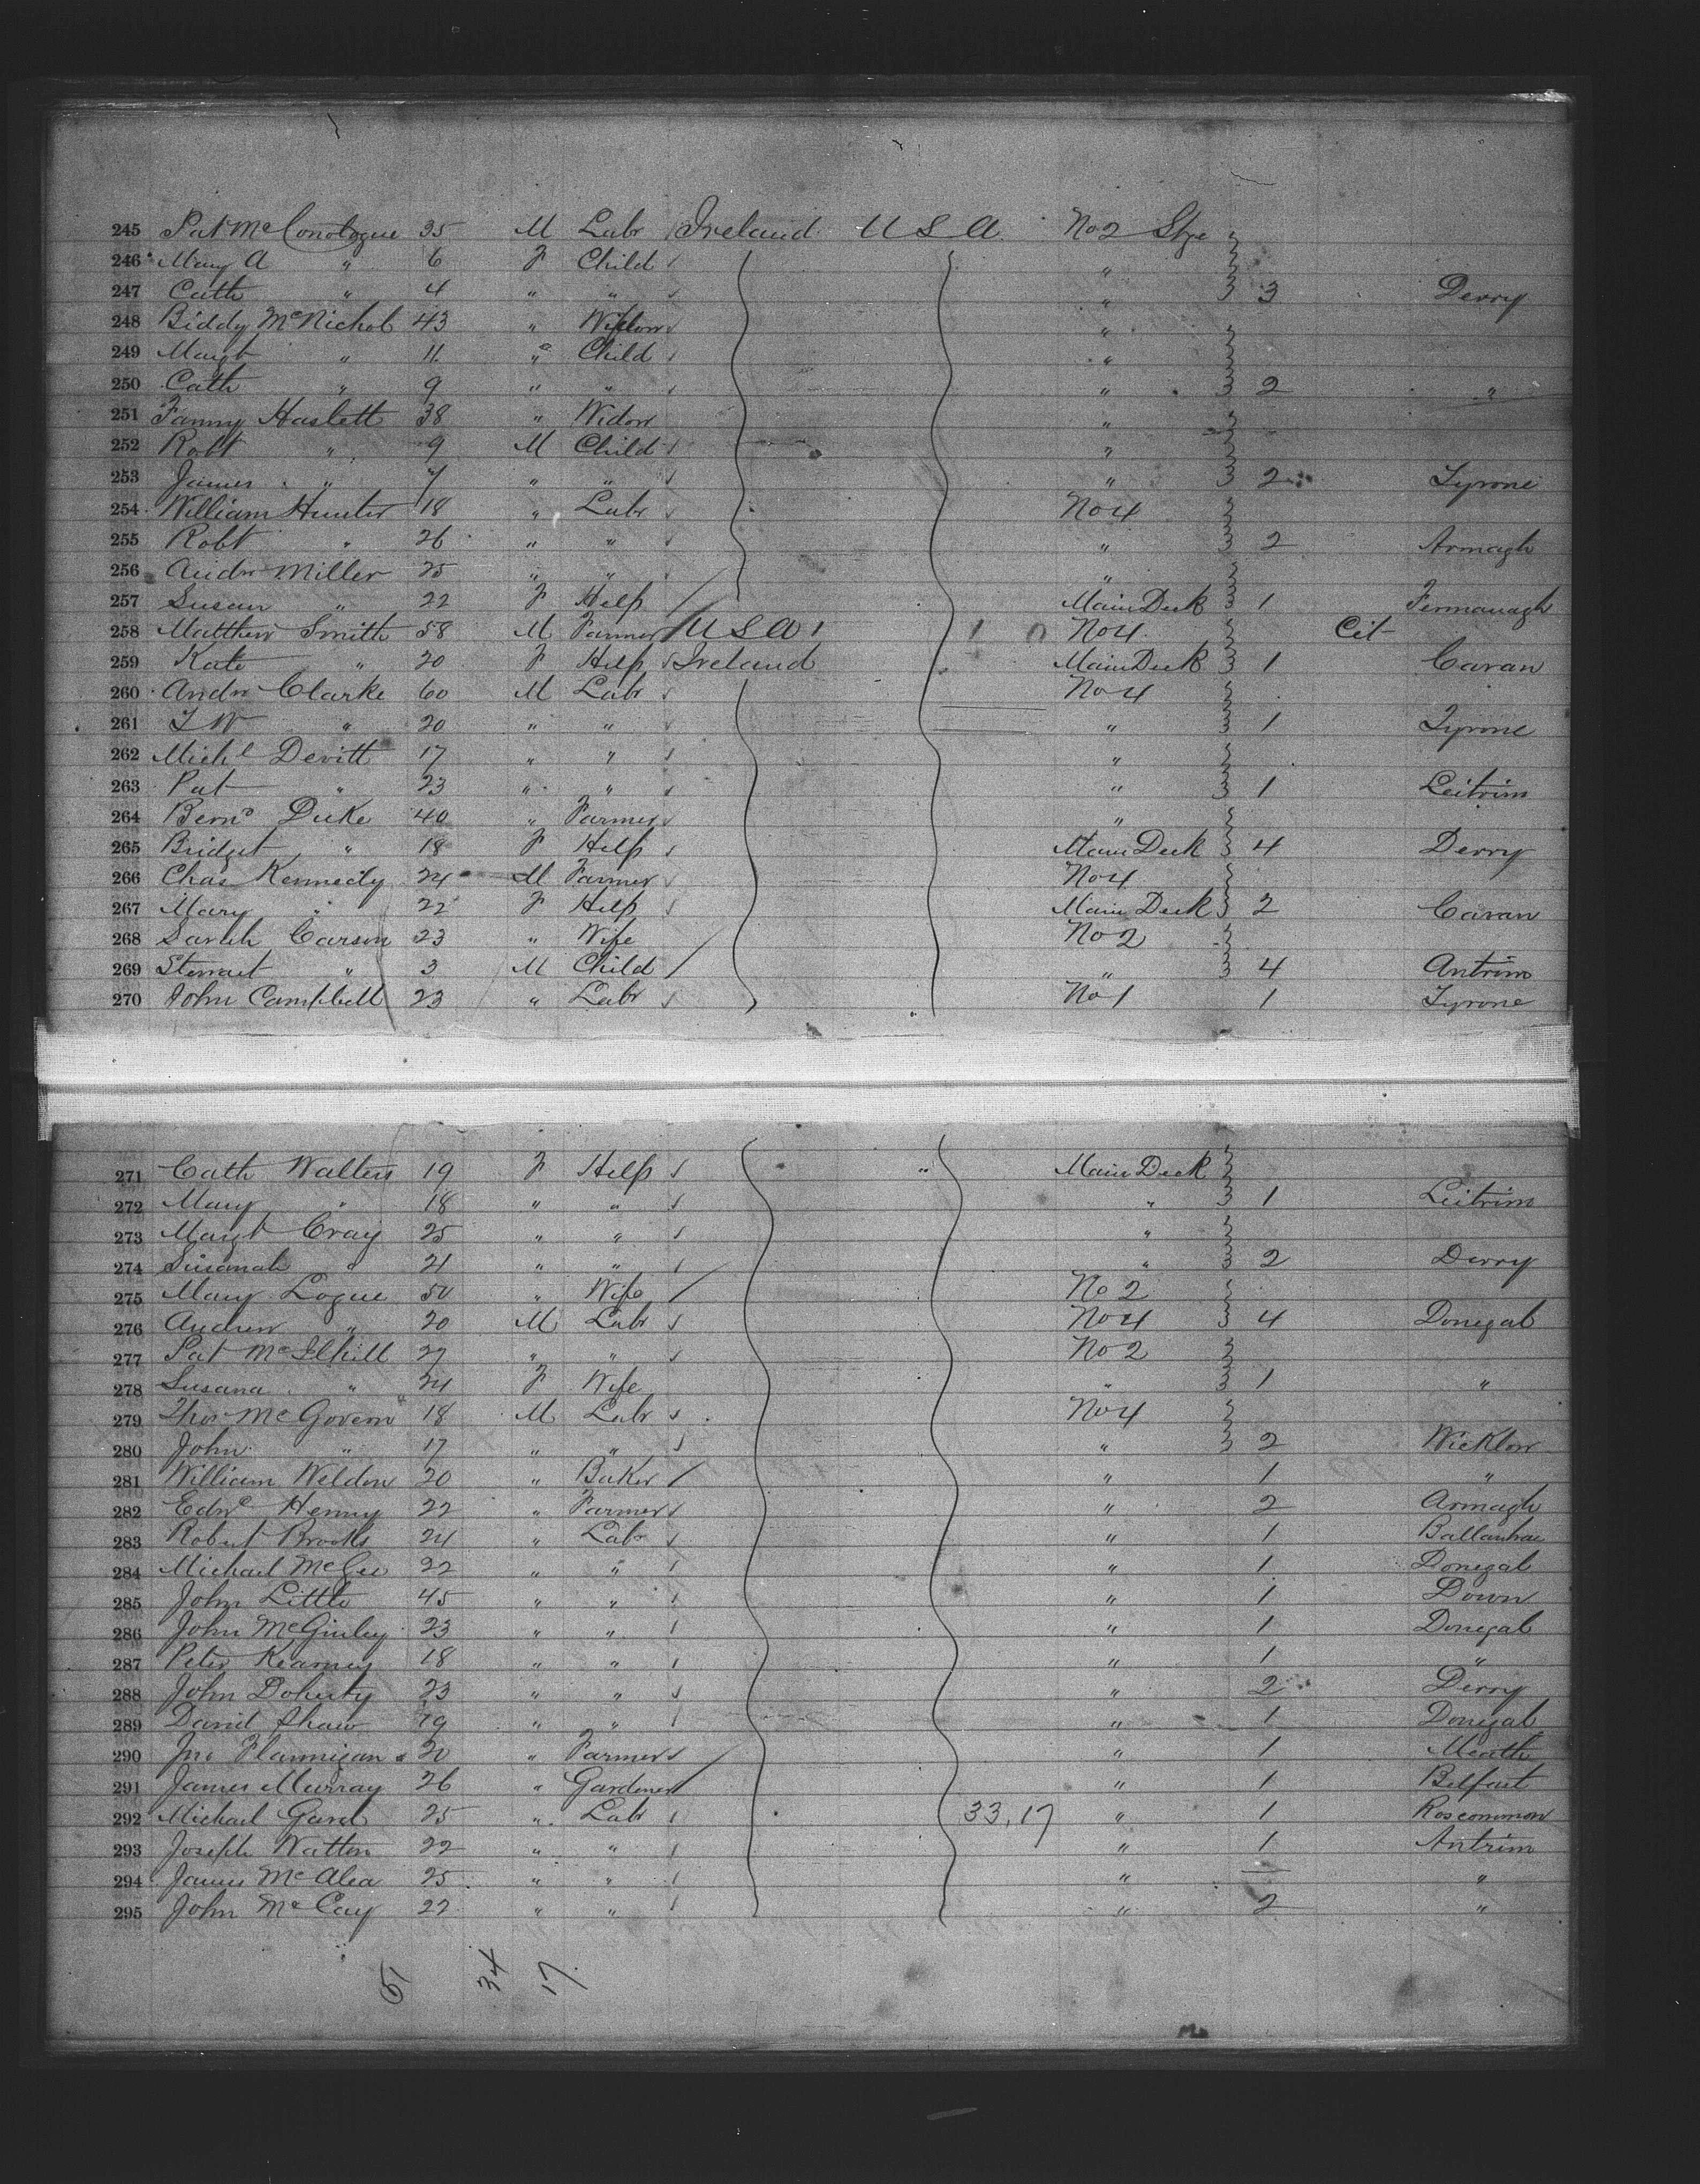 245 Pat McConologue 35 M Labr Ireland USA No 2 Stge
246 Mary A " 6 F Child "
247 Cath " 4 " " " 3 Derry
248 Biddy McNichol 43 " Widow "
249 Margt " 11 " Child "
250 Cath " 9 " " " 2 "
251 Fanny Haslett 38 " Widow "
252 Robt " 9 M Child "
253 James " 7 " " " 2 Tyrone
254 William Hunter 18 " Labr No 4
255 Robt " 26 " " " 2 Armagh
256 Andw Miller 25 " " "
257 Susan " 22 F Help Main Deck 1 Fermanagh
258 Matthew Smith 58 M Farmer USA 1 No 4 Cit
259 Kate " 20 F Help Ireland Main Deck 1 Cavan
260 Andw Clarke 60 M Labr No 4
261 T W " 20 " " " 1 Tyrone
262 Michl Devitt 17 " " "
263 Pat " 23 " " " 1 Leitrim
264 Bernd Duke 40 " Farmer "
265 Bridget " 18 F Help Main Deck 4 Derry
266 Chas Kennedy 24 M Farmer No 4
267 Mary " 22 F Help Main Deck 2 Cavan
268 Sarah Carson 23 " Wife No 2
269 Stewart " 3 M Child " 4 Antrim
270 John Campbell 23 " Labr No 1 1 Tyrone
271 Cath Walters 19 F Help " Main Deck
272 Mary " 18 " " " 1 Leitrim
273 Margt Cray 25 " " "
274 Susanah " 21 " " " 2 Derry
275 Mary Logue 50 " Wife No 2
276 Andrew " 20 M Labr No 4 4 Donegal
277 Pat McIlhill 27 " " No 2
278 Susana " 24 F Wife " 1 "
279 Thos McGovern 18 M Labr No 4
280 John " 17 " " " 2 Wicklow
281 William Weldon 20 " Baker " 1 "
282 Edwd Henry 22 " Farmer " 2 Armagh
283 Robert Brooks 24 " Labr " 1
284 Michael McGee 22 " " " 1 Donegal
285 John Little 45 " " " 1 Down
286 John McGinley 23 " " " 1 Donegal
287 Peter Kearney 18 " " " 1 "
288 John Doherty 23 " " " 2 Derry
289 David Shaw 19 " " " 1 Donegal
290 Jno Flannigan 20 " Farmer " 1 Meath
291 James Murray 26 " Gardener " 1 Belfast
292 Michael 25 " Labr 33,17 " 1 Roscommon
293 Joseph Watton 22 " " " 1 Antrim
294 James McAlea 25 " " " — "
295 John McCay 22 " " " 2 "
51 34 17